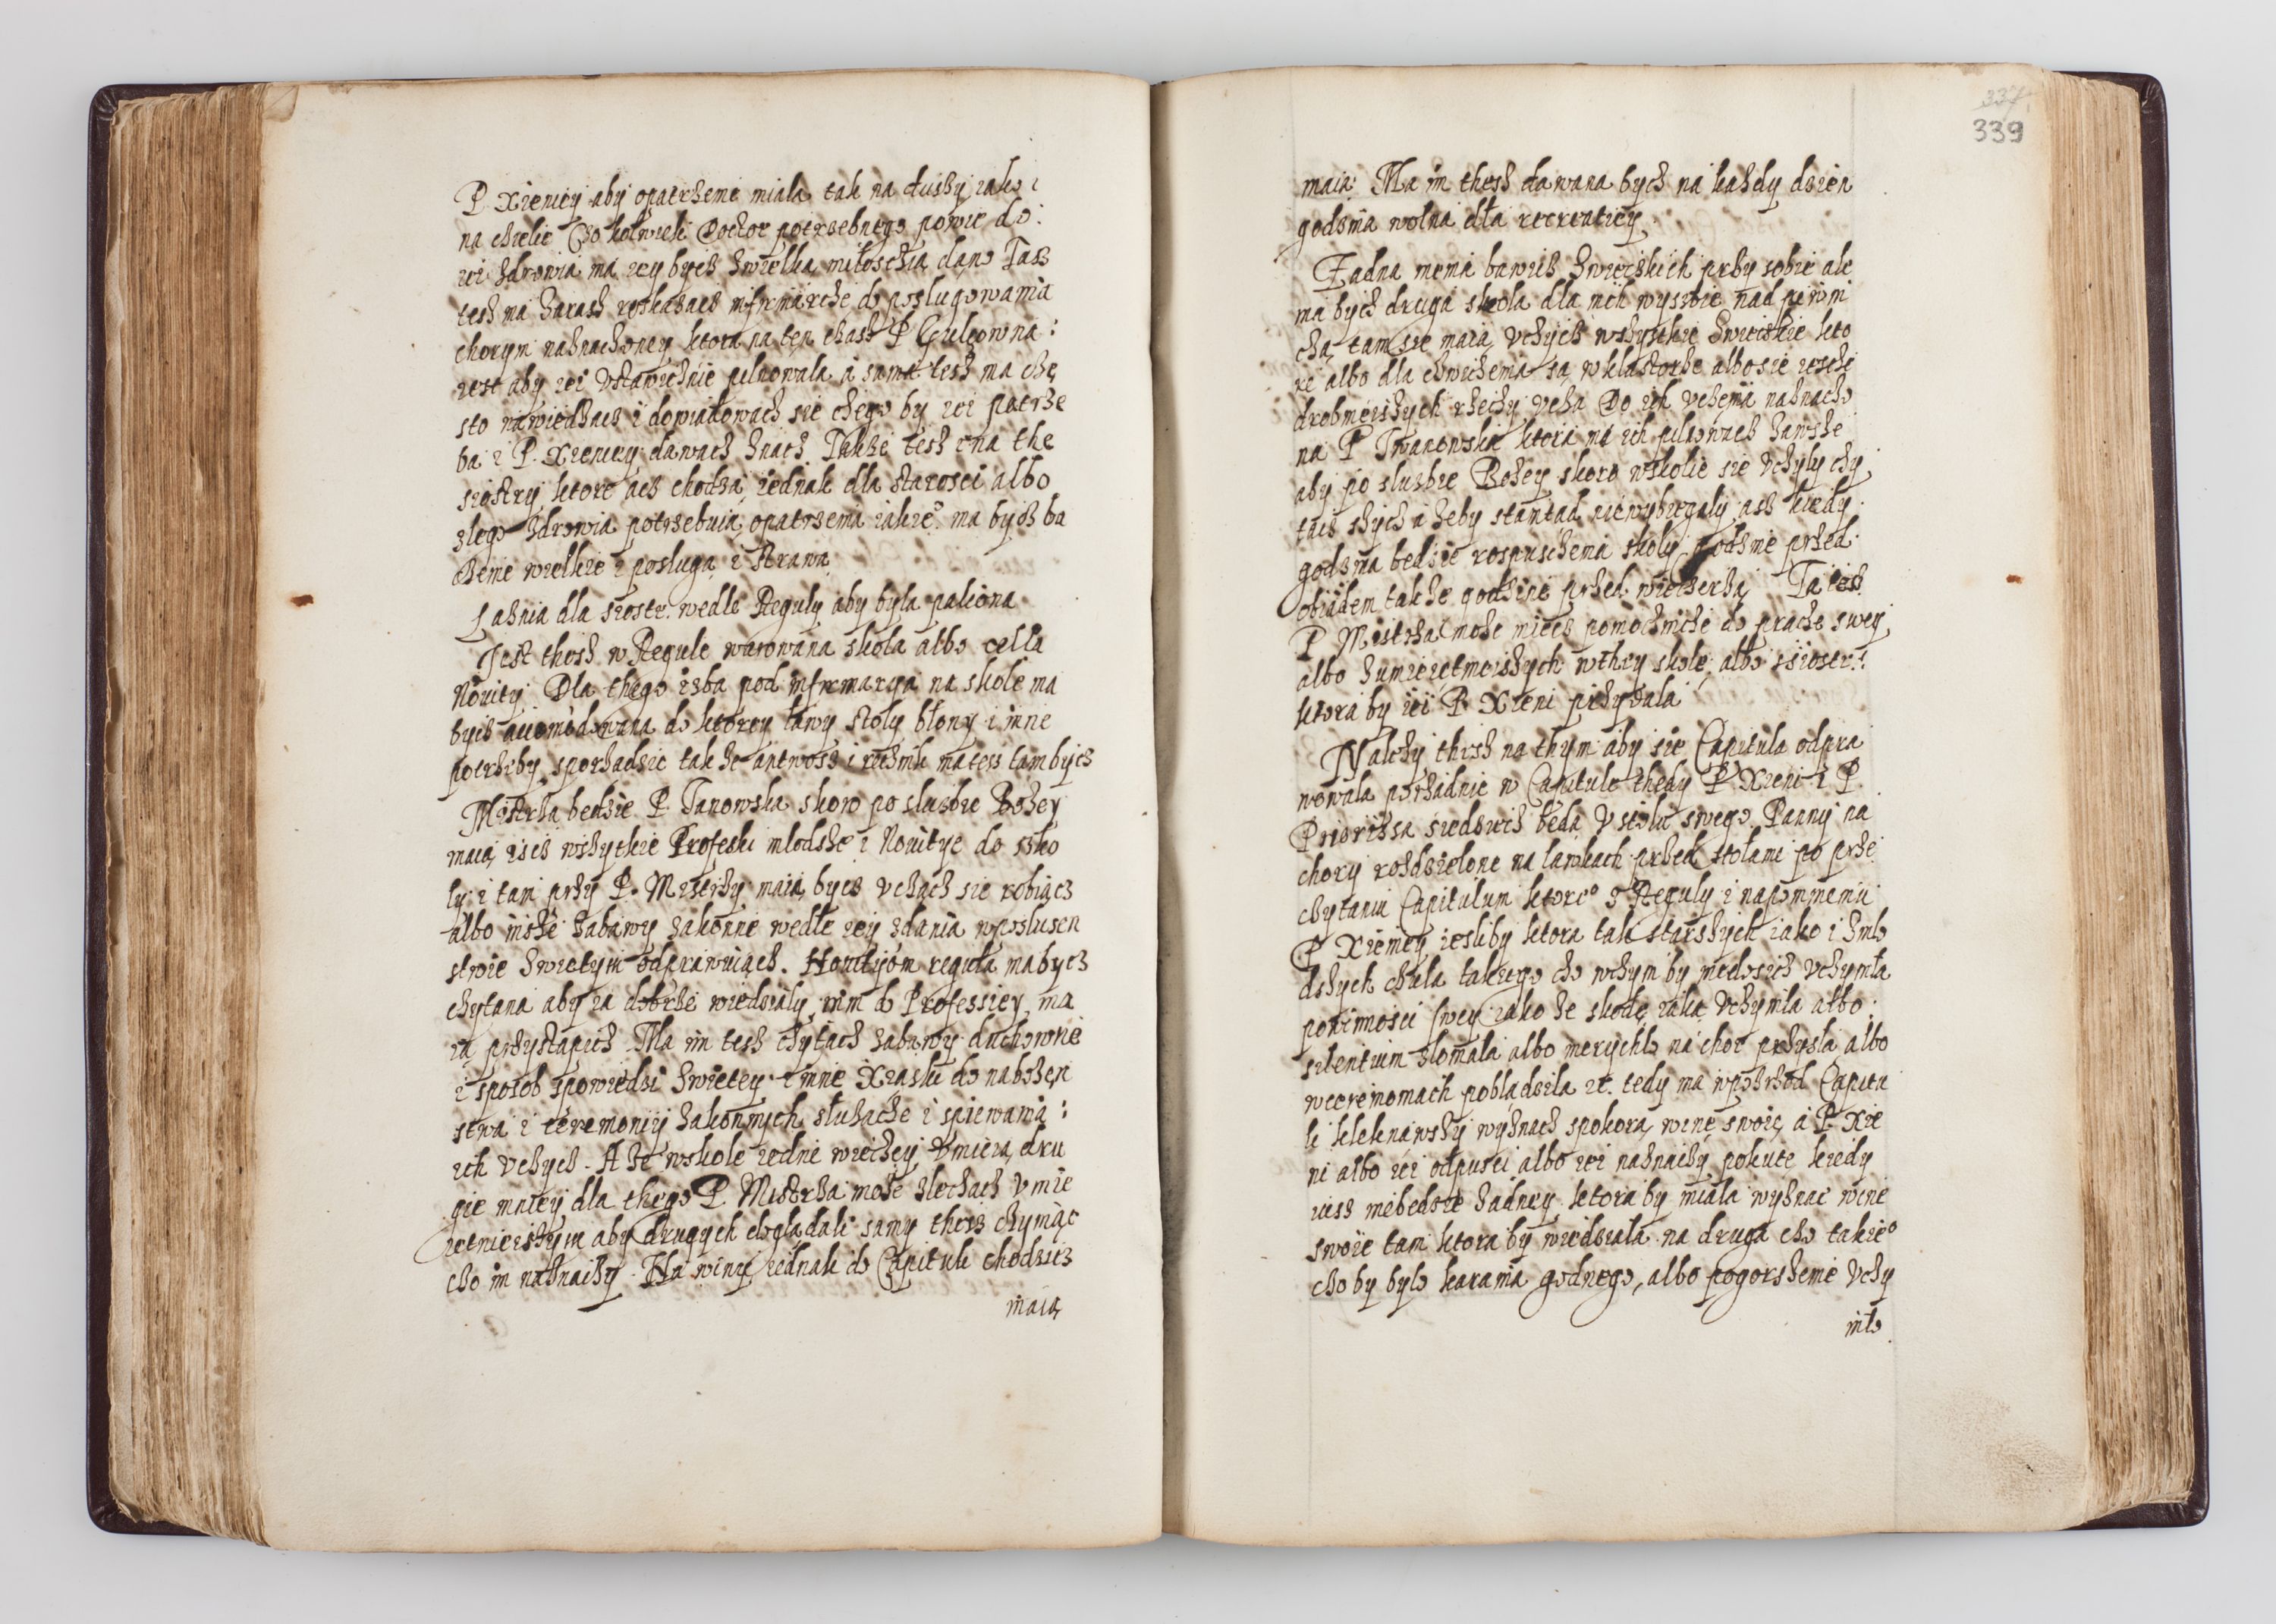 P. Xieniey aby opatrzenie miala tak na duszy iako i
na ciele Czo kolwiek Doctor potrzebnego powie do
iei zdrowia ma iey bycz zwielką miłosczią dano Tasz
tesz ma zarasz roskazacz infirmarcze do poslugowania
chorym naznaczoney ktora na ten czasz P Gulcowna:
iest aby iei vstawicznie pilnowala a sama tesz ma czę
sto nawiedzacz i dopiadowacz sie czego by iei potrze
ba i P. Xieniey dawacz znacz Takze tesz ina the
siostry ktore acz chodzą iednak dla starosci albo
zlego zdrowia potrzebuią opatrzenia iakie° ma bycz ba
czenie wielkie i poslugą i strawą
Łaznia dla siostr wedle Reguly aby byla paliona
Jest thesz w Regule warowana skola albo cella
Nouity Dla thego izba pod infirmaryą na skole ma
bycz accomodowana do ktorey lawy stoly blony i inne
potrzeby sporządzic tak ze antwosz i recznik ma tesz tam bycz
Mistrza bedzie P. Tanowska skoro po sluzbie Bozey
maią iscz wszytkie Profeski mlodsze i Nouitye do szko
ly i tam przy P. Mistrzy maią bycz vczacz sie robiącz
albo insze zabawy zakonne wedle iey zdania wposluszen
stwie swietym odprawuiącz. Nouityom regula ma bycz
czytana aby ia dobrze wiedzialy nim do Professiey ma
ią przystąpicz Ma im tesz czytacz zabawy duchowne
i sposob spowiedzi swietey i inne Xiąski do nabozen
stwa i ceremonij zakonnych sluchacze i spiewania:
ich vczycz. A ze wskole iedne wieczey vmieią dru
gie mniey dla thego P. Mistrza moze zlecacz vmie
ietnieiszym aby drugych doglądali samy thesz czymąc
czo im naznaczy. Na winy iednak do Capitule chodzicz
maią
maią Ma im thesz dawana bycz na kazdy dzien
godzina wolna dla recreatiey
Zadna niema bawicz swieczkich przy sobie ale
ma bycz druga skola dla nich wyszsze nad piwni
czą tam sie maią vczycz wszystkie swieczkie kto
re albo dla cwiczenia są w klasztorze albo sie iescze
drobnieiszych rzeczy vczą Do ich vczenia naznaczo
na P Iwanowska ktora ma ich pilnowacz zawsze
aby po sluzbie Bozey skoro wskolie sie vczyly czy
tacz szycz a zeby stamtad nie wybiegaly asz kiedy
godzina bedzie rospusczenia skoly godzine przed
obiadem takze godzine przed wieczerzą Ta iesz
P Mistrza moze miecz pomocznicze do pracze swey
albo zumieietnieiszych wthey skole albo ssiostr
ktora by iei P Xieni przydala
Nalezy thesz na thym aby sie Capitula odpra
wowala porządnie w Capitule thedy P Xieni i P.
Priorissa siedziecz bedą v stolu swego Panny na
chory rozdzielone na lawkach przed stolami po prze
czytaniu Capitulum ktore° z Reguly i napomnieniu
P Xieniey iesliby ktora tak starszych iako i zmlo
dszych czula takiego czo wczym by niedosicz vczynila
powinnosci swey iako ze skode iaką vczynila albo
silentium zlomala albo nierychlo na chor przysla albo
wceremoniach pobladzila ic. tedy ma wposrzod Capitu
li kleknawszy wyznacz spokorą winę swoię a P Xie
ni albo iei odpusci albo iei naznaczy pokute kiedy
iusz niebedzie zadney ktora by miala wyznac winę
swoie tam ktora by wiedziala na drugą czo takie°
czo by bylo karania godnego, albo pogorszenie vczy
nilo
337
339